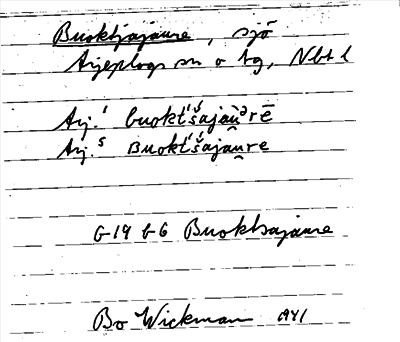 Buoktjajaure, sjö
Arjeplogs sn o tg, Nbt l
Arj.¹ buokt'š́ajau̯ᵊrē
Arj.⁵ Buokt'š́ajau̯re
G-19 b6 Buoktsajaure
Bo Wickman 1941